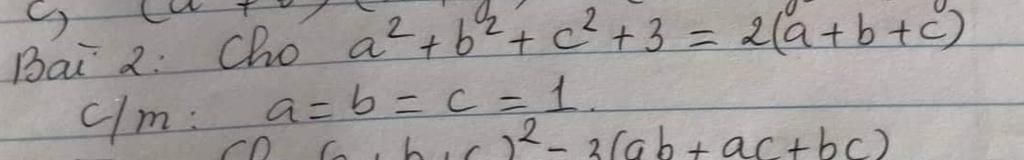 Bài 2: Cho a² + b² + c² + 3 = 2(a + b + c)
c/m: a = b = c = 1.
b + c)² - 3(ab + ac + bc)